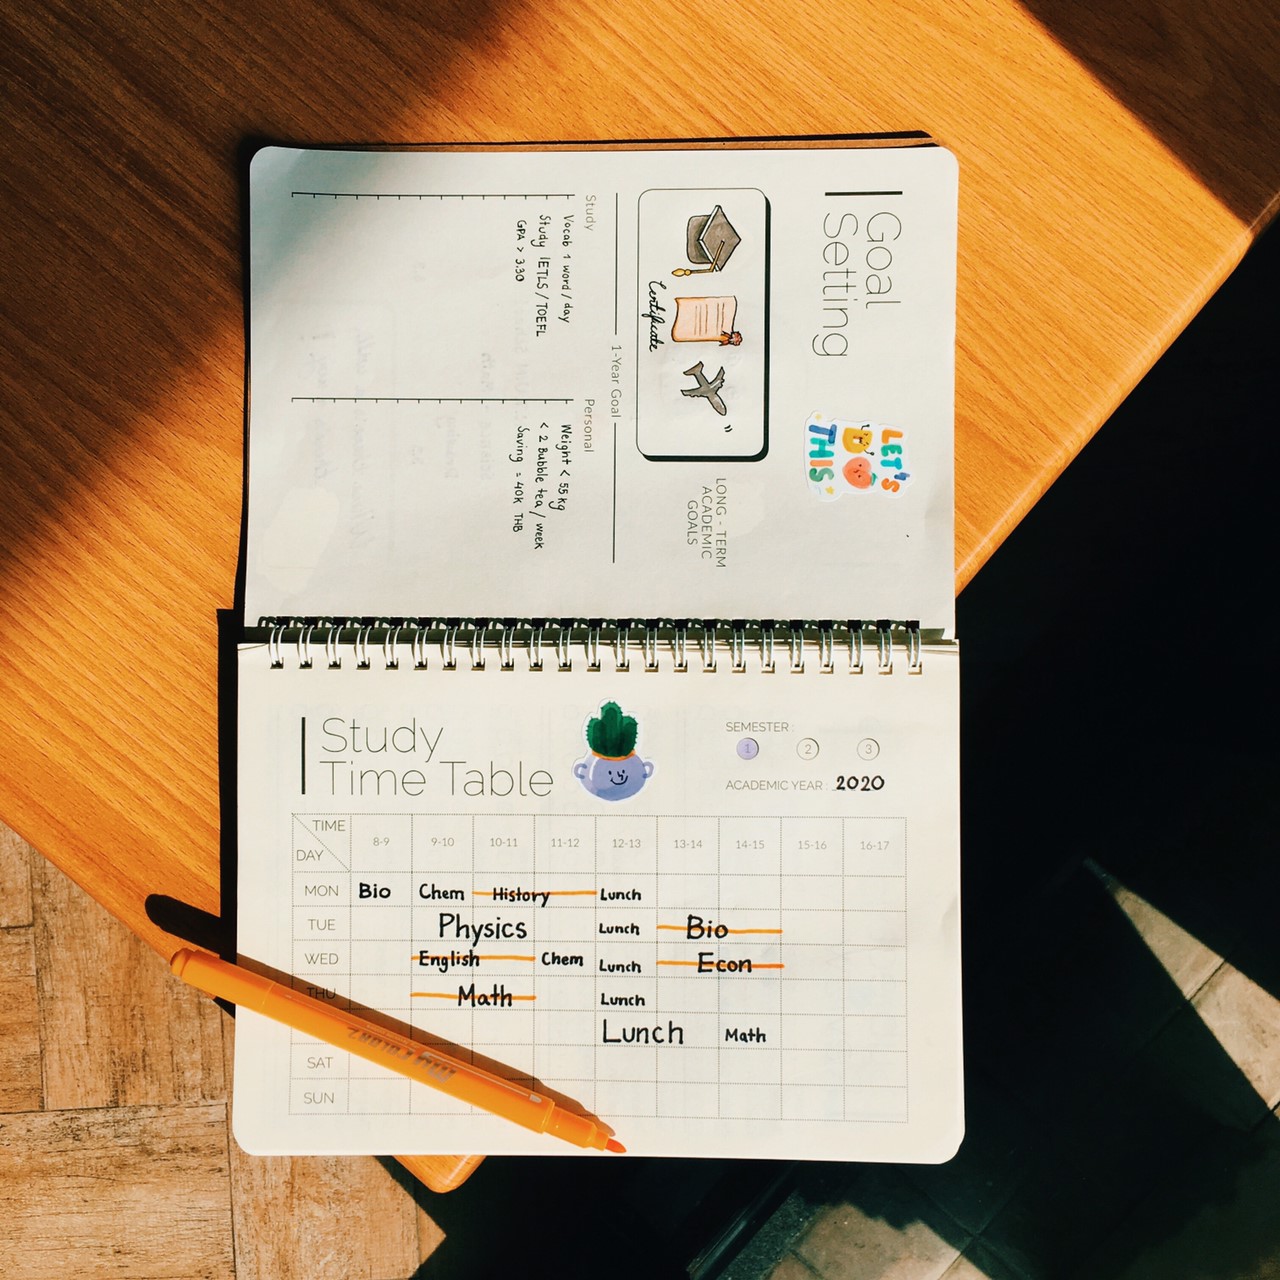 Goal
Setting
LET'S
DO
THIS
Certificate
LONG - TERM
ACADEMIC
GOALS
1-Year Goal
Study
Vocab 1 word / day
Study IETLS / TOEFL
GPA > 3.30
Personal
Weight < 55 kg
< 2 Bubble tea / week
Saving = 40K THB
Study
Time Table
SEMESTER :
1 2 3
ACADEMIC YEAR : 2020
TIME
DAY
8-9 9-10 10-11 11-12 12-13 13-14 14-15 15-16 16-17
MON Bio Chem History Lunch
TUE Physics Lunch Bio
WED English Chem Lunch Econ
THU Math Lunch
Lunch Math
SAT
SUN
My COLORZ